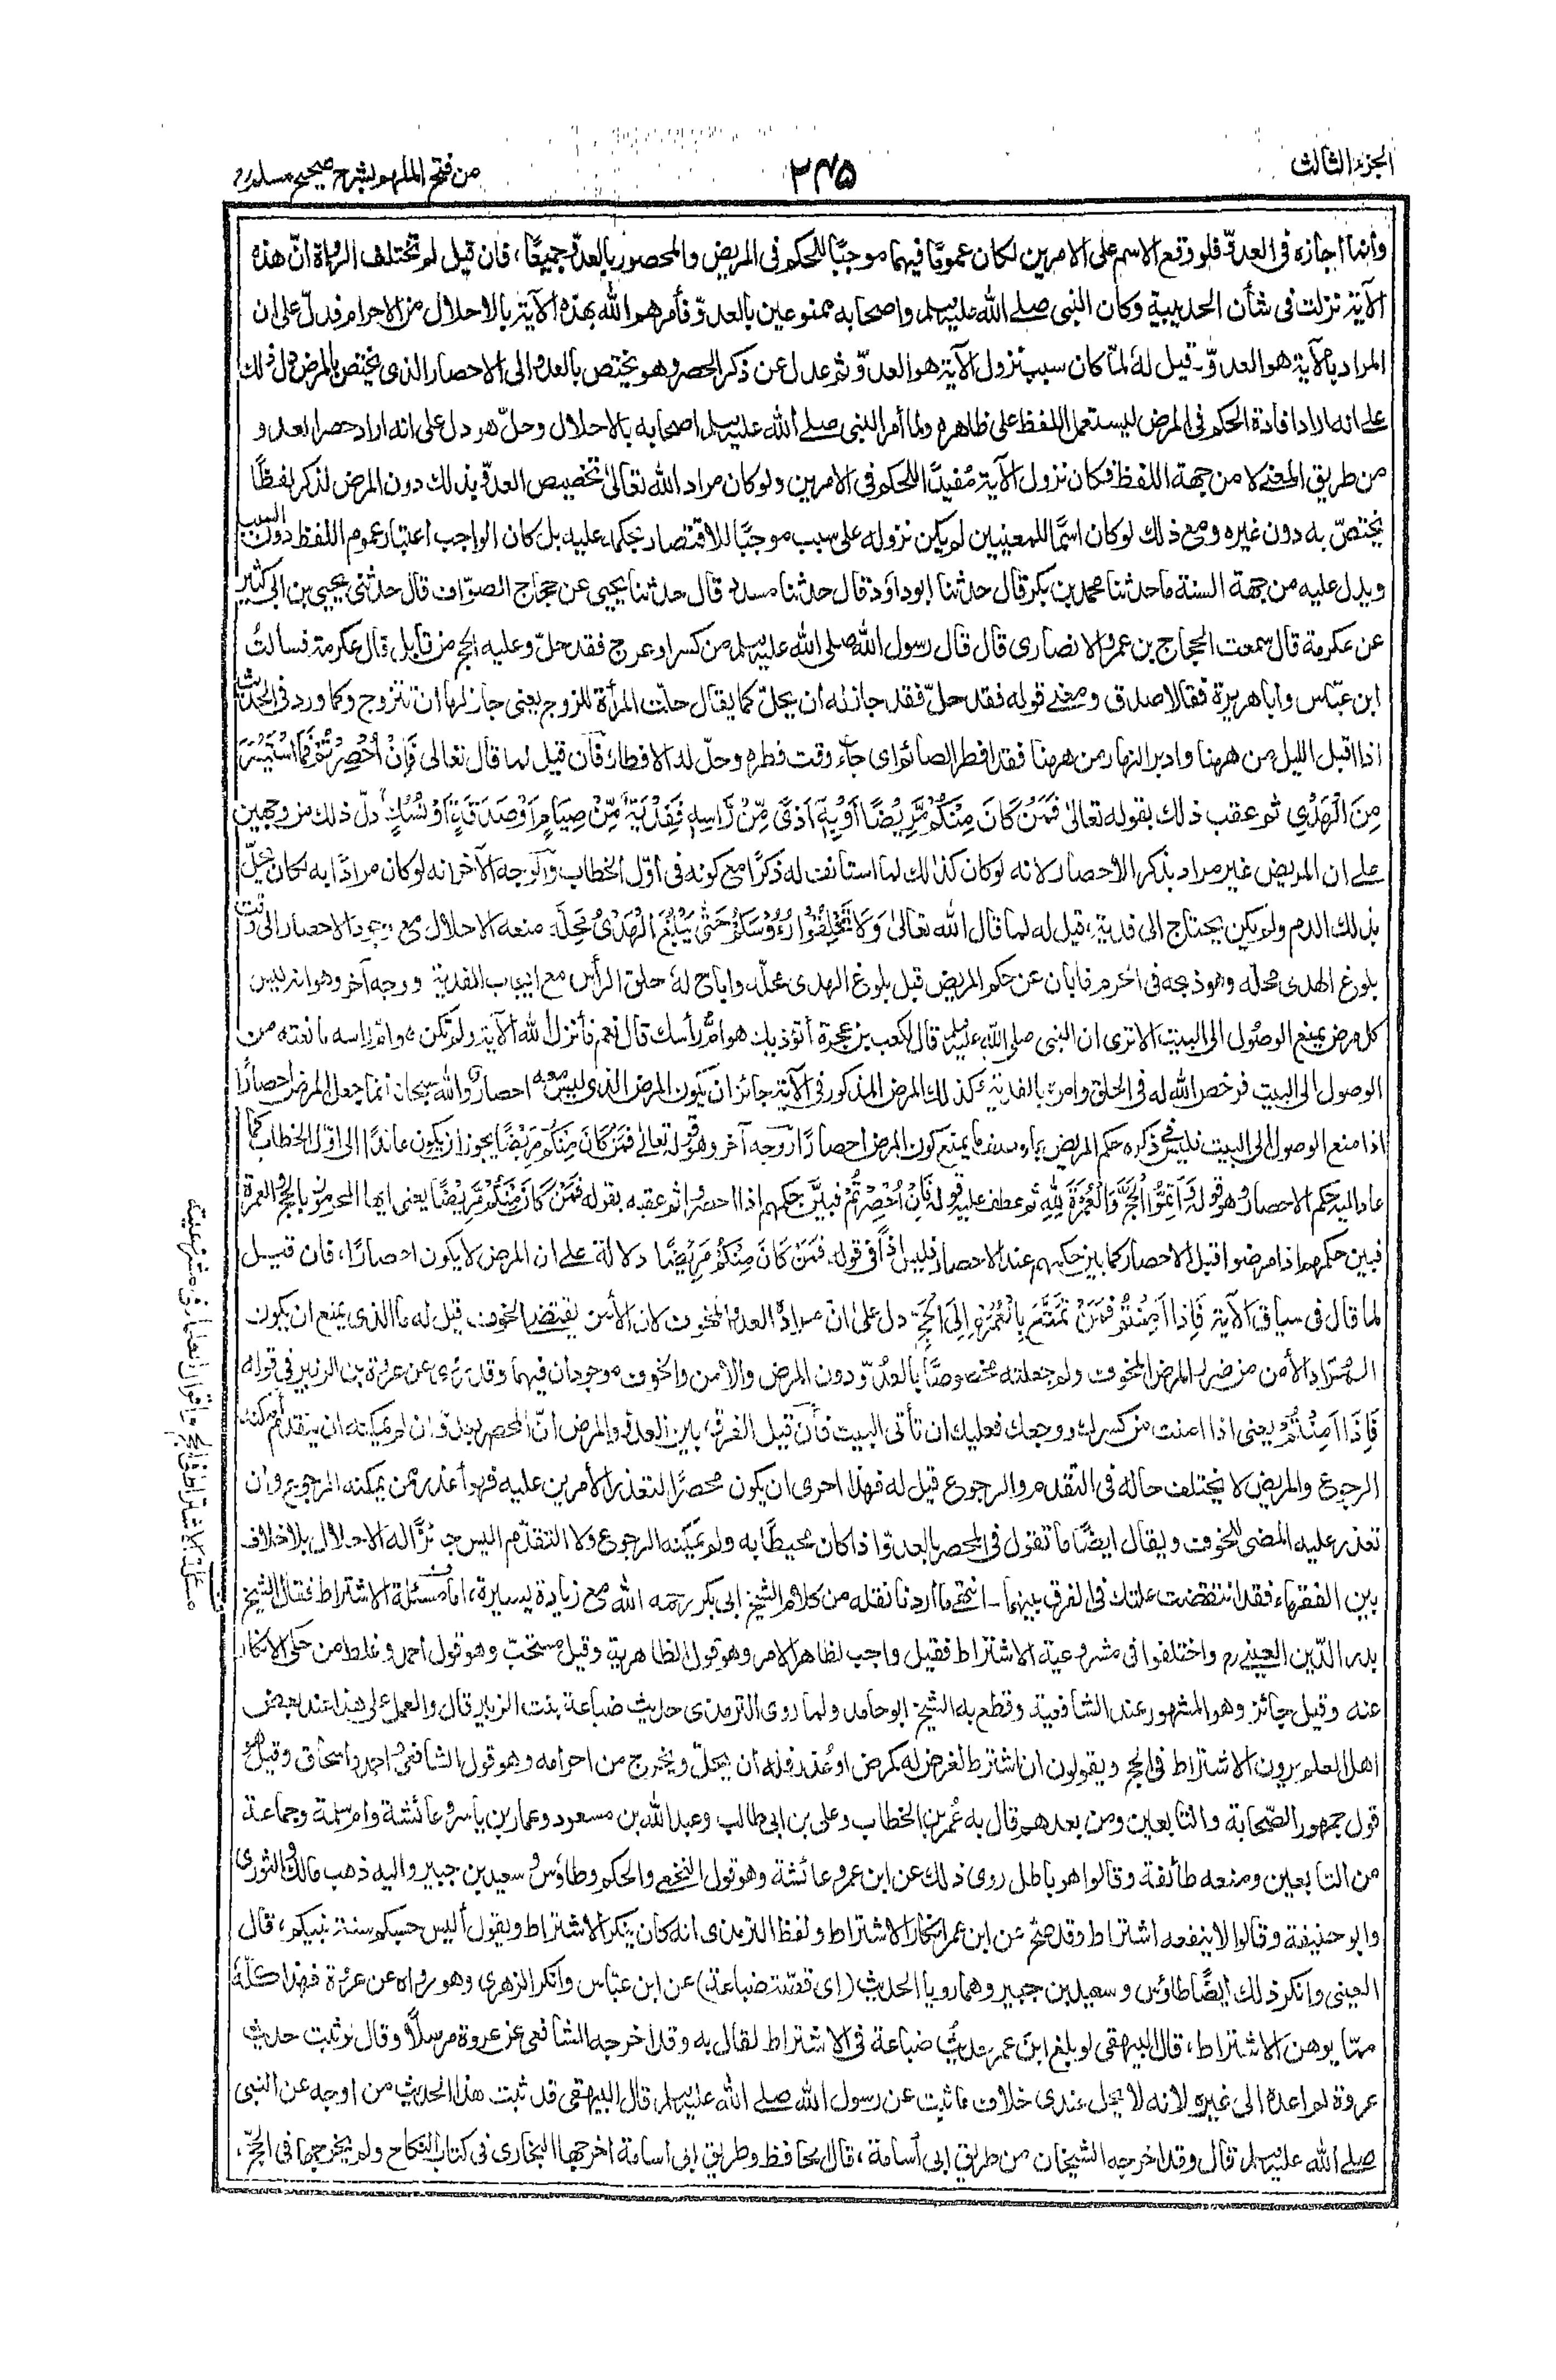 الجزء الثالث
٢٣٥
من فتح الملهم بشرح صحيح مسلم
وأنما اجازه فى العدوّ فلو وقع الاسم على الامرين لكان عمومًا فيهما موجبًا للحكم فى المريض والمحصور بالعدوّ جميعًا، فان قيل لم تختلف الرواة انّ هذه
الآية نزلت فى شأن الحديبية وكان النبى صلے الله عليه وسلم واصحابه ممنوعين بالعدوّ فأمرهم الله بهذه الآية بالاحلال من الاحرام فدلّ على ان
المراد بالآية هو العدوّ - قيل له لمّا كان سبب نزول الآية هو العدوّ ثم عدل عن ذكر الحصر وهو يختص بالعدو الى الاحصار الذى يختص بالمرض دل ذلك
علے انه اراد افادة الحكم فى المرض ليستعمل اللفظ على ظاهره ولما أمر النبى صلے الله عليه وسلم اصحابه بالاحلال وحلّ هو دل على انه اراد حصر العدو و
من طريق المعنے لا من جهة اللفظ فكان نزول الآية مُفيدًا للحكم فى الامرين ولو كان مراد الله تعالىٰ تخصيص العدوّ بذلك دون المرض لذكر لفظًا
يختصّ به دون غيره ومع ذلك لو كان اسمًا للمعنيين لم يكن نزوله على سبب موجبًا للاقتصار بحكمه عليه بل كان الواجب اعتبار عموم اللفظ دون السبب
ويدل عليه من جهة السنة ما حدثنا محمد بن بكر قال حدثنا ابو داؤد قال حدثنا مسدد قال حدثنا يحيى عن حجاج الصوّاف قال حدثنى يحيى بن ابى كثير
عن عكرمة قال سمعت الحجاج بن عمرو الانصارى قال قال رسول الله صلى الله عليه وسلم من كسر او عرج فقد حلّ وعليه الحج من قابل قال عكرمة فسألتُ
ابن عبّاس وأبا هريرة فقالا صدق ومعنے قوله فقد حلّ فقد جاز له ان يحلّ كما يقال حلّت المرأة للزوج يعنى جاز لها ان تتزوج وكما ورد فى الحديث
اذا اقبل الليل من ههنا وادبر النهار من ههنا فقد افطر الصائم اى جاء وقت فطره وحلّ له الافطار فان قيل لما قال تعالى فَإِنْ اُحْصِرْتُمْ فَمَا اسْتَيْسَرَ
مِنَ الْهَدْيِ ثم عقب ذلك بقوله تعالىٰ فَمَنْ كَانَ مِنْكُمْ مَّرِيْضًا اَوْ بِهٖ اَذًى مِّنْ رَّاسِهٖ فَفِدْيَةٌ مِّنْ صِيَامٍ اَوْ صَدَقَةٍ اَوْ نُسُكٍ دلّ ذلك من وجهين
علے ان المريض غير مراد بذكر الأحصار لانه لو كان كذلك لما استأنف له ذكرًا مع كونه فى أوّل الخطاب والوجه الآخر انه لو كان مرادًا به لكان يحلّ
بذلك الدم ولم يكن يحتاج الى فدية، قيل له لما قال الله تعالىٰ وَلَا تَحْلِقُوْا رُءُوْسَكُمْ حَتّٰى يَبْلُغَ الْهَدْىُ مَحِلَّهٗ منعه الاحلال مع وجود الاحصار الى وقت
بلوغ الهدى محله وهو ذبحه فى الحرم فأبان عن حكم المريض قبل بلوغ الهدى محلّه واباح له حلق الرأس مع ايجاب الفدية ووجه آخر وهو انه ليس
كل مرض يمنع الوصُول الى البيت الا ترى ان النبى صلى الله عليه وسلم قال لكعب بن عجرة أتؤذيك هوامّ رأسك قال نعم فأنزل الله الآية ولم تكن هوامّ رأسه مانعته من
الوصول الى البيت فرخص الله له فى الحلق وامره بالفدية كذلك المرض المذكور فى الآية جائز ان يكون المرض الذى ليس معه احصار والله سبحانه انما جعل المرض احصارًا
اذا منع الوصول الى البيت فليس فى ذكره حكم المريض بما وصف ما يمنع كون المرض احصارًا ووجه آخر وهو قوله تعالے فَمَنْ كَانَ مِنْكُمْ مَّرِيْضًا يجوز ان يكون عائدًا الى اوّل الخطاب كما
عاد اليه حكم الاحصار وهو قوله وَاَتِمُّوا الْحَجَّ وَالْعُمْرَةَ لِلّٰهِ ثم عطف عليه قوله فَاِنْ اُحْصِرْتُمْ فبيّن حكمهم اذا احصروا ثم عقبه بقوله فَمَنْ كَانَ مِنْكُمْ مَّرِيْضًا يعنى ايها المحرمون بالحج والعمرة
فبين حكمهم اذا مرضوا قبل الاحصار كما بين حكمهم عند الاحصار فليس اذًا فى قوله فَمَنْ كَانَ مِنْكُمْ مَرِيْضًا دلالة على ان المرض لا يكون احصارًا، فان قيل
لما قال فى سياق الآية فَاِذَا اَمِنْتُمْ فَمَنْ تَمَتَّعَ بِالْعُمْرَةِ اِلَى الْحَجِّ دل على ان مراده العدو المخوف لان الأمن يقتضى الخوف قيل له ما الذى يمنع ان يكون
المراد الأمن من ضرر المرض المخوف ولم جعلته مخصوصًا بالعدوّ دون المرض والأمن والخوف موجودان فيهما وقد روى عن عروة بن الزبير فى قوله
فَاِذَا اَمِنْتُمْ يعنى اذا امنت من كسرك ووجعك فعليك ان تأتى البيت فأن قيل الفرق بين العدو والمرض انّ المحصر بعدوّ ان لم يمكنه ان يتقدم أمكنه
الرجوع والمريض لا يختلف حاله فى التقدم والرجوع قيل له فهذا احرى ان يكون محصرًا لتعذر الأمرين عليه فهو أعذر ممن يمكنه الرجوع وان
تعذر عليه المضى للخوف ويقال ايضًا ما تقول فى المحصر بالعدوّ اذا كان محيطًا به ولم يمكنه الرجوع ولا التقدّم اليس جائزًا له الاحلال بلا خلاف
بين الفقهاء فقد انتقضت علتك فى الفرق بينهما - انتهى ما أردنا نقله من كلام الشيخ ابى بكر رحمه الله مع زيادة يسيرة، اما مسئلة الاشتراط فقال الشيخ
بدر الدّين العينے رح واختلفوا فى مشروعية الاشتراط فقيل واجب لظاهر الامر وهو قول الظاهرية وقيل مستحبّ وهو قول احمد وغلط من حكى الانكار
عنه وقيل جائز وهو المشهور عند الشافعية وقطع به الشيخ ابو حامد ولما روى الترمذى حديث ضباعة بنت الزبير قال والعمل على هذا عند بعض
اهل العلم يرون الاشتراط فى الحج ويقولون ان اشترط لغرض له كمرض او عُذر فله أن يحلّ ويخرج من احرامه وهو قول الشافعى واحمد واسحاق وقيل هو
قول جمهور الصّحابة والتابعين ومن بعدهم قال به عُمر بن الخطاب وعلى بن ابى طالب وعبد الله بن مسعود وعمار بن ياسر وعائشة وام سلمة وجماعة
من التابعين ومنعه طائفة وقالوا هو باطل روى ذلك عن ابن عمر وعائشة وهو قول النخعے والحكم وطاؤس وسعيد بن جبير واليه ذهب مالك والثورى
وابو حنيفة وقالوا لا ينفعه اشتراط وقد صح عن ابن عمر انكار الاشتراط ولفظ الترمذى انه كان ينكر الاشتراط ويقول أليس حسبكم سنة نبيكم، قال
العينى وانكر ذلك أيضًا طاؤس وسعيد بن جبير وهما رويا الحديث (اى قصّة ضباعة) عن ابن عبّاس وانكر الزهرى وهو رواه عن عروة فهذا كلّه
ممّا يوهن الاشتراط، قال البيهقى لو بلغ ابن عمر حديثُ ضباعة فى الاشتراط لقال به وقد اخرجه الشافعى عن عروة مرسلًا وقال لو ثبت حديث
عروة لم اعده الى غيره لانه لا يحل عندى خلاف ما ثبت عن رسول الله صلے الله عليه وسلم قال البيهقى قد ثبت هذا الحديث من اوجه عن النبى
صلے الله عليه وسلم قال وقد اخرجه الشيخان من طريق ابى أسامة، قال الحافظ وطريق ابى أسامة اخرجها البخارى فى كتاب النكاح ولم يخرجها فى الحجّ،
مسئلة الاشتراط فى الحج واقوال العلماء فى مشروعيته